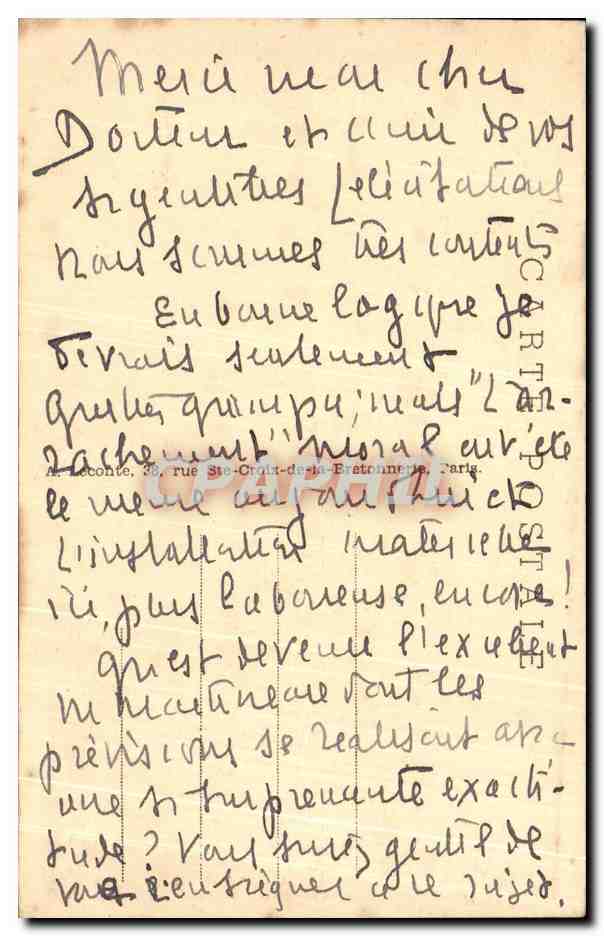 Merci mon cher
Docteur et ami de vos
si gentilles félicitations
nous sommes très contents
En bonne logique je
devrais seulement
mais "L'ar-
rachement" moral eut été
A. Leconte, 38, rue Ste-Croix-de-la-Bretonnerie, Paris.
le même aujourd'hui et
L'installation matérielle
ici, plus laborieuse, encore!
Qu'est devenu l'excellent
dont les
prévisions se réalisent avec
une si surprenante exacti-
tude? Vous seriez gentil de
renseigner à ce sujet.
CARTE POSTALE
CPAPHIL